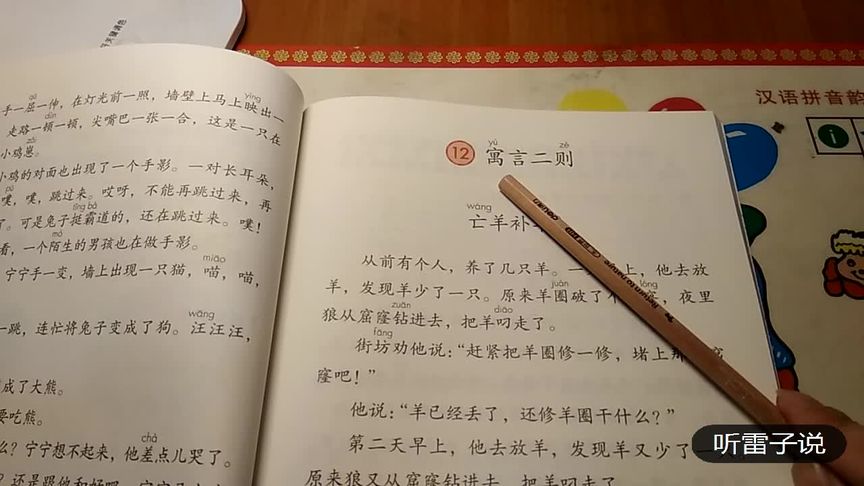 手一屈一伸，在灯光前一照，墙壁上马上映出一
走路一顿一顿，尖嘴巴一张一合，这是一只在
小鸡崽。
小鸡的对面也出现了一个手影。一对长耳朵，
噗，噗，跳过来。哎呀，不能再跳过来，再
了。可是兔子挺霸道的，还在跳过来。噗！
看，一个陌生的男孩也在做手影。
宁宁手一变，墙上出现一只猫，喵，喵，
一跳，连忙将兔子变成了狗。汪汪汪，
成了大熊。
要吃熊。
么？宁宁想不起来，他差点儿哭了。
？还是跟他和好吧，宁宁
12 寓言二则
yù zé
wáng
亡羊补
从前有个人，养了几只羊。一 上，他去放
羊，发现羊少了一只。原来羊圈破了 ，夜里
狼从窟窿钻进去，把羊叼走了。
街坊劝他说：“赶紧把羊圈修一修，堵上那 窟
窿吧！”
他说：“羊已经丢了，还修羊圈干什么？”
第二天早上，他去放羊，发现羊又少了一
原来狼又从窟窿钻进去，把羊叼走了
汉语拼音韵
i
Return to nature
听雷子说